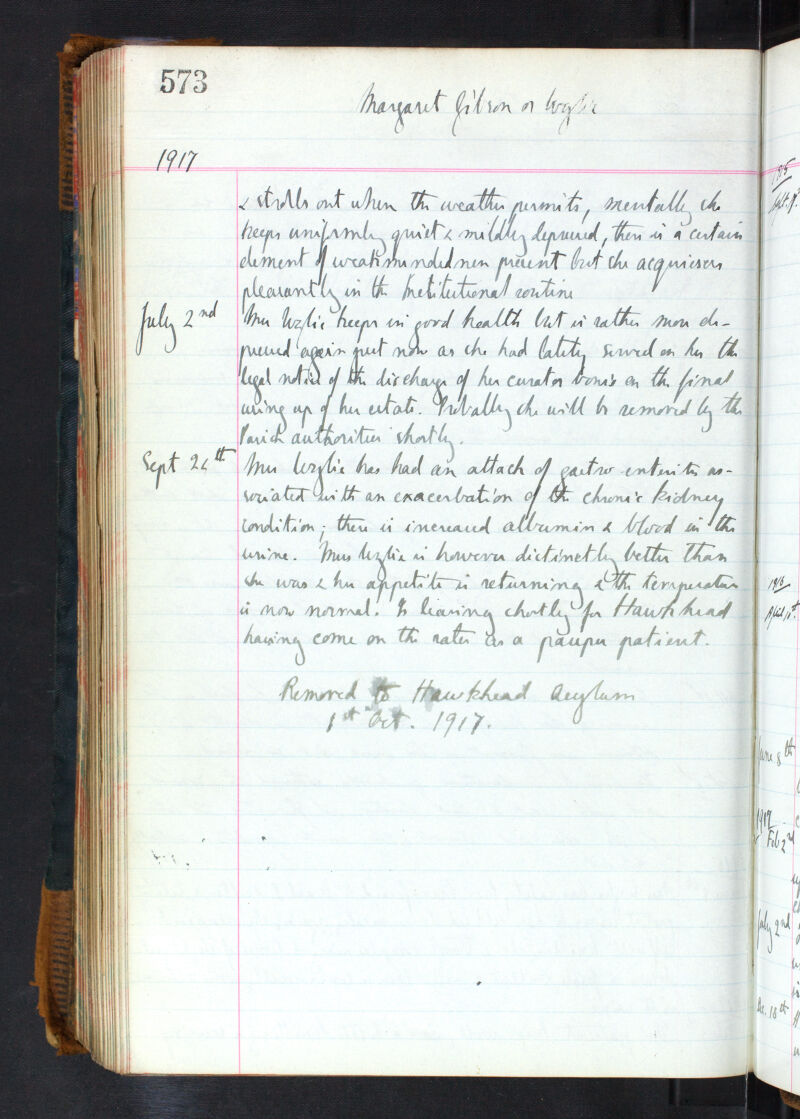 573
Margaret Gibson or Wylie
1917
& strolls out when the weather permits, mentally she
keeps uniformly quiet & mildly depressed, there is a certain
element of weakmindedness present but she acquiesces
pleasantly in the Institutional routine
July 2nd
Mrs Wylie keeps in good health but is rather more de-
pressed again just now as she had lately served on her the
legal notice of the discharge of her curator bonis on the final
uring up of her estate. Probably she will be removed by the
Parish authorities shortly.
Sept 24th
Mrs Wylie has had an attack of gastro-enteritis as-
sociated with an exacerbation of the chronic kidney
condition; there is increased albumin & blood in the
urine. Mrs Wylie is however distinctly better than
she was & her appetite is returning & the temperature
is now normal. Is leaving shortly for Hawkhead
having come on the rates as a pauper patient.
Removed to Hawkhead Asylum
1st Oct. 1917.
June 8th
1917
Feb 2nd
July 2nd
Dec. 18th